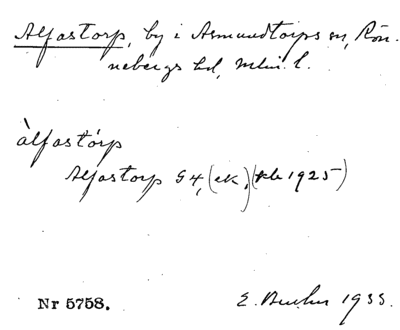 Alfastorp, by i Asmundtorps sn, Rön-
nebergs hd, Mlm. l.
àlfastórp
Alfastorp G4, (ek), (kb 1925)
Nr 5758.
E. 1933.